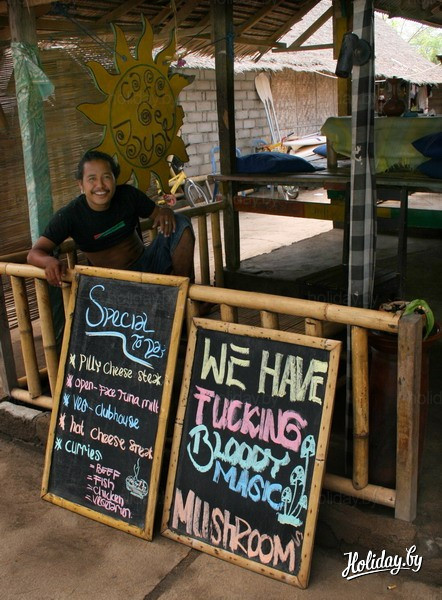 Special
Today's
* Pilly Cheese steak
* open-Face Tuna milt
* Veg-clubhouse
* hot cheese Break
* curries
= BEEF
= Fish
= Chicken
= Vegetarian
WE HAVE
FUCKING
BLOODY
MAGIC
MUSHROOMS
Holiday.by